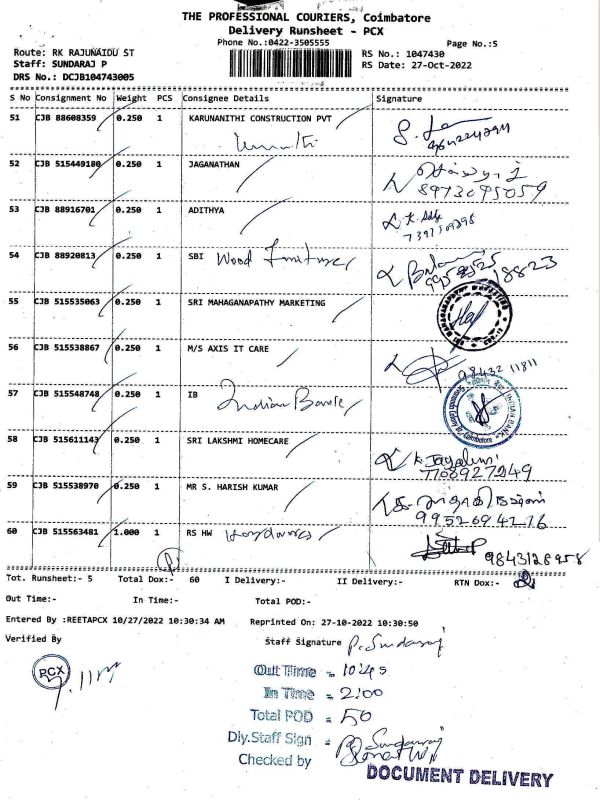 THE PROFESSIONAL COURIERS, Coimbatore
Delivery Runsheet - PCX
Phone No.:0422-3505555
Page No.:5
Route: RK RAJUNAIDU ST
RS No.: 1047430
Staff: SUNDARAJ P
RS Date: 27-Oct-2022
DRS No.: DCJB104743005
S No Consignment No Weight PCS Consignee Details Signature
51 CJB 88608359 0.250 1 KARUNANITHI CONSTRUCTION PVT
52 CJB 515449180 0.250 1 JAGANATHAN
8973095059
53 CJB 88916701 0.250 1 ADITHYA
54 CJB 88920813 0.250 1 SBI Wood Furniture
18823
55 CJB 515535063 0.250 1 SRI MAHAGANAPATHY MARKETING
56 CJB 515538867 0.250 1 M/S AXIS IT CARE
98432 11811
57 CJB 515548748 0.250 1 IB Indian Bank
INDIAN BANK
Coimbatore
58 CJB 515611143 0.250 1 SRI LAKSHMI HOMECARE
7708927249
59 CJB 515538970 0.250 1 MR S. HARISH KUMAR
9952694276
60 CJB 515563481 1.000 1 RS HW Hardwares
9843128958
Tot. Runsheet:- 5 Total Dox:- 60 I Delivery:- II Delivery:- RTN Dox:-
Out Time:- In Time:- Total POD:-
Entered By :REETAPCX 10/27/2022 10:30:34 AM Reprinted On: 27-10-2022 10:30:50
Verified By
Staff Signature P. Sundaraj
PCX
Out Time - 10:45
In Time - 2:00
Total POD = 50
Dly.Staff Sign : Sundaraj
Checked by
DOCUMENT DELIVERY